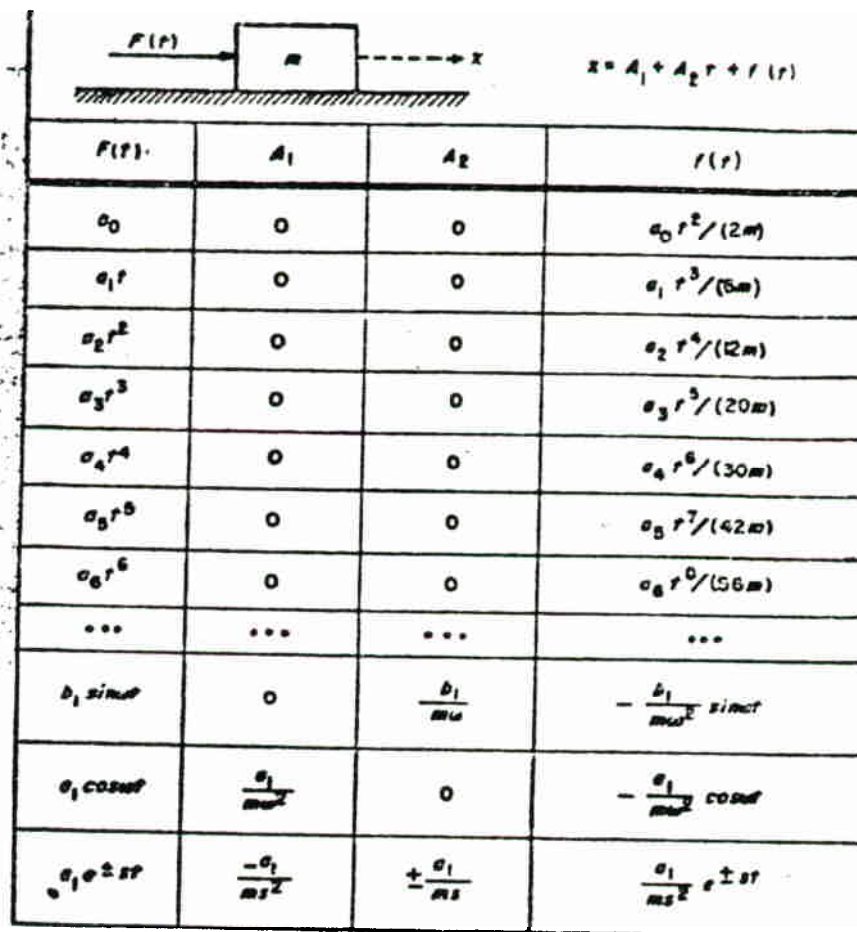 F(t) m x x = A₁ + A₂ t + f(t)
F(t) A₁ A₂ f(t)
a₀ 0 0 a₀ t²/(2m)
a₁t 0 0 a₁ t³/(6m)
a₂t² 0 0 a₂ t⁴/(12m)
a₃t³ 0 0 a₃ t⁵/(20m)
a₄t⁴ 0 0 a₄ t⁶/(30m)
a₅t⁵ 0 0 a₅ t⁷/(42m)
a₆t⁶ 0 0 a₆ t⁸/(56m)
... ... ... ...
b₁ sinωt 0 b₁/mω - b₁/mω² sinωt
a₁ cosωt a₁/mω² 0 - a₁/mω² cosωt
a₁ e^± st -a₁/ms² ± a₁/ms a₁/ms² e^± st